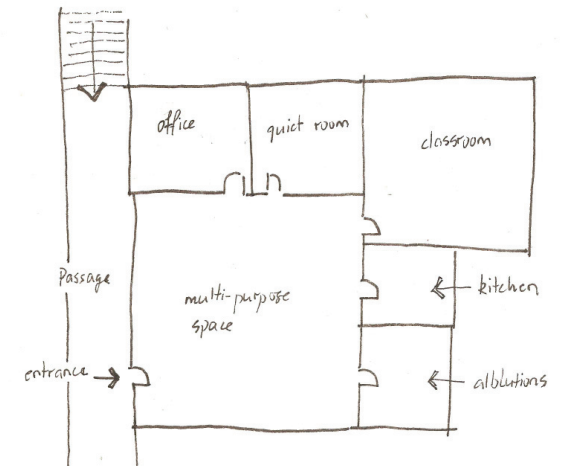 office
quiet room
classroom
Passage
multi-purpose
space
kitchen
entrance
alblutions